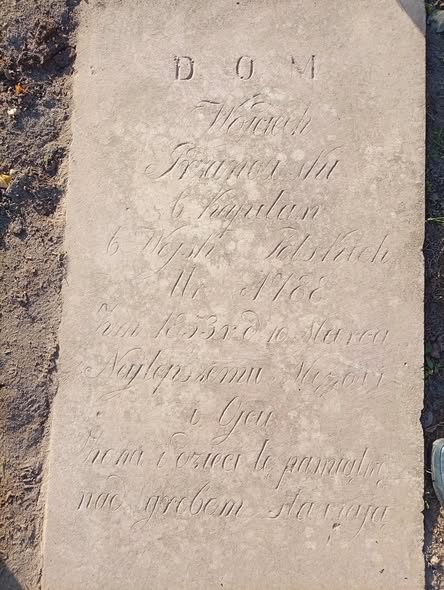 D O M
Woiciech
b Kapitan
b Wojsk Polskich
Ur 1788
Zm 1853 r d 10 Marca
Naylepszemu Mężowi
i Oycu
Żona i dzieci tę pamiątkę
nad grobem stawiają